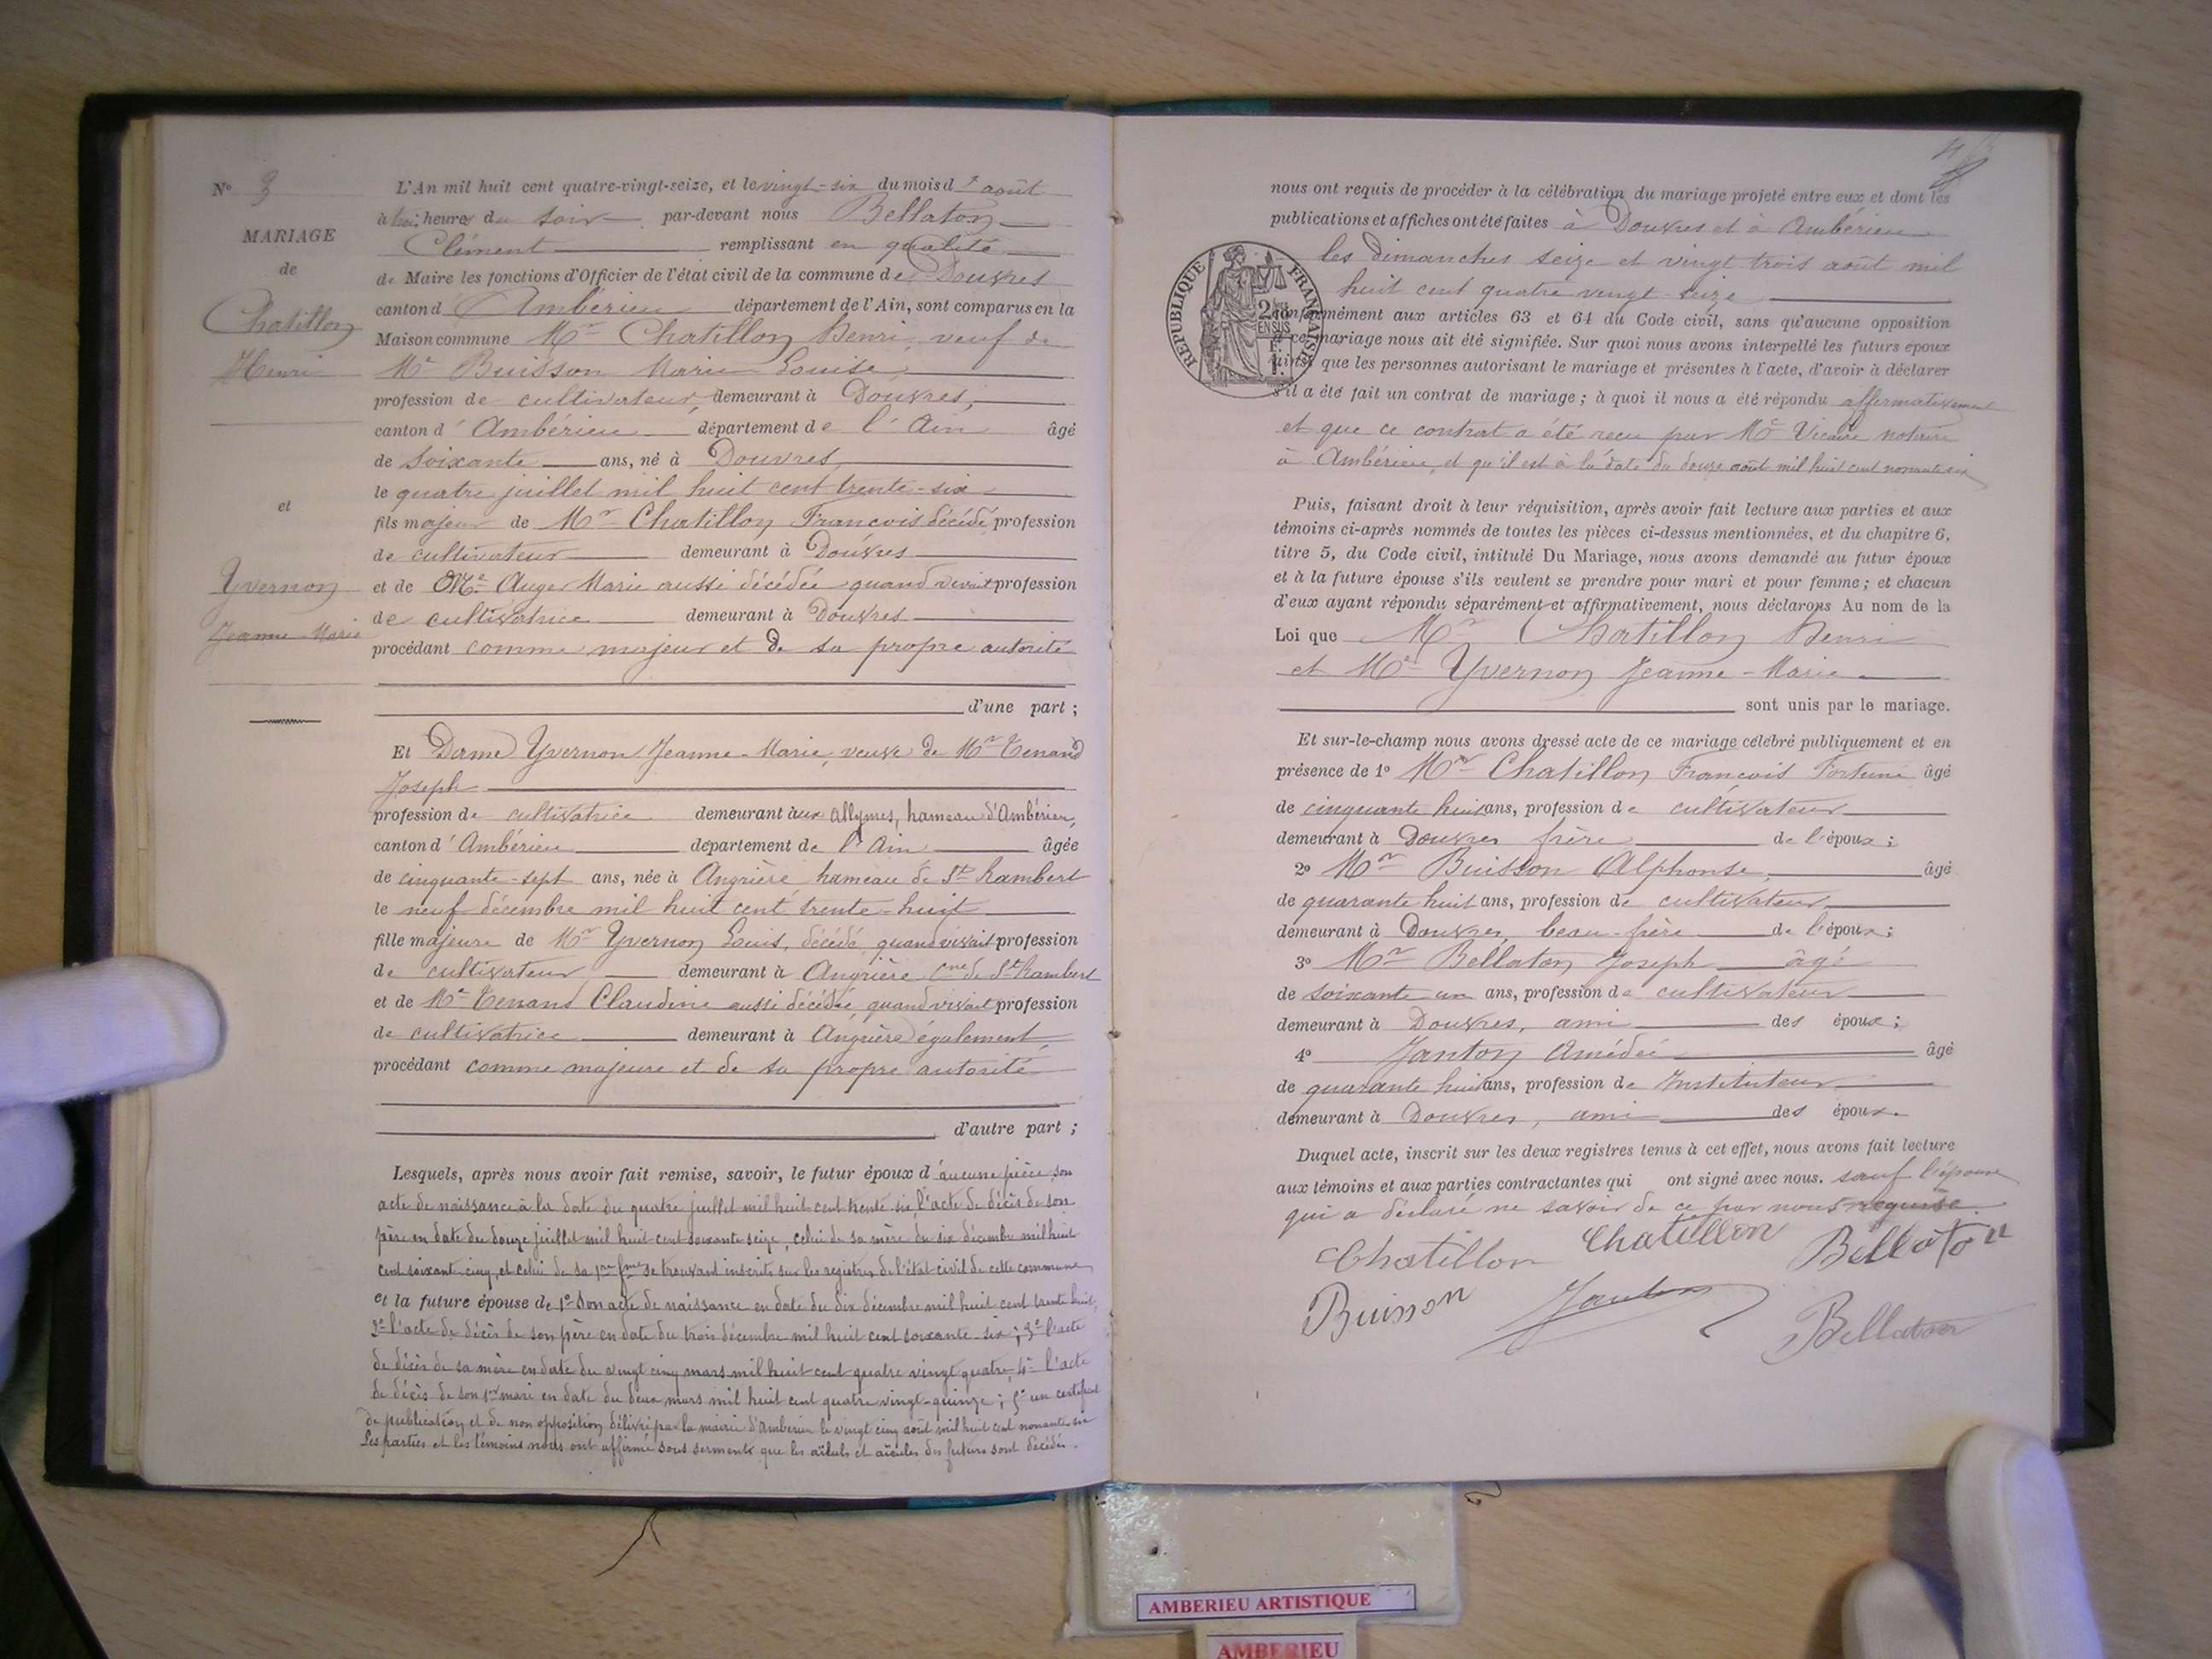 N° 3
MARIAGE
de
Chatillon
Henri
et
Yvernon
Jeanne-Marie
L'An mil huit cent quatre-vingt-seize, et le vingt-six du mois d' août
à heures du soir par-devant nous Bellaton
Clément remplissant en qualité
de Maire les fonctions d'Officier de l'état civil de la commune de Douvres
canton d' Ambérieu département de l'Ain, sont comparus en la
Maison commune Mr Chatillon Henri, veuf de
Me Buisson Marie Louise,
profession de cultivateur, demeurant à Douvres,
canton d' Ambérieu département de l'Ain âgé
de soixante ans, né à Douvres
le quatre juillet mil huit cent trente-six
fils majeur de Mr Chatillon François décédé profession
de cultivateur demeurant à Douvres
et de Me Auger Marie aussi décédée quand vivait profession
de cultivatrice demeurant à Douvres
procédant comme majeur et de sa propre autorité
d'une part ;
Et Dame Yvernon Jeanne-Marie, veuve de Mr Tenand
Joseph
profession de cultivatrice demeurant aux allymes, hameau d'Ambérieu,
canton d' Ambérieu département de l'Ain âgée
de cinquante-sept ans, née à Angrière hameau de St Rambert
le neuf décembre mil huit cent trente-huit
fille majeure de Mr Yvernon Louis, décédé, quand vivait profession
de cultivateur demeurant à Angrière Cne de St Rambert
et de Me Tenand Claudine aussi décédée quand vivait profession
de cultivatrice demeurant à Angrière également,
procédant comme majeure et de sa propre autorité
d'autre part ;
Lesquels, après nous avoir fait remise, savoir, le futur époux d'aucune pièce, son
acte de naissance à la date du quatre juillet mil huit cent trente-six, l'acte de décès de son
père en date du douze juillet mil huit cent soixante seize, celui de sa mère du six décembre mil huit
cent soixante cinq, et celui de sa 1re fme se trouvant inscrits sur les registres de l'état-civil de cette commune,
et la future épouse de 1° Son acte de naissance en date du dix décembre mil huit cent trente huit,
2° l'acte de décès de son père en date du trois décembre mil huit cent soixante-six ; 3° l'acte
de décès de sa mère en date du vingt cinq mars mil huit cent quatre vingt quatre, 4° l'acte
de décès de son 1er mari en date du deux mars mil huit cent quatre vingt-quinze ; 5° un certificat
de publication et de non opposition délivré par la mairie d'Ambérieu le vingt cinq août mil huit cent nonante-six
Les parties et les témoins nous ont affirmé sous serment que les aïeuls et aïeules des futurs sont décédés.
nous ont requis de procéder à la célébration du mariage projeté entre eux et dont les
publications et affiches ont été faites à Douvres et à Ambérieu
les dimanches seize et vingt trois août mil
huit cent quatre vingt-seize
RÉPUBLIQUE FRANÇAISE
conformément aux articles 63 et 64 du Code civil, sans qu'aucune opposition
à ce mariage nous ait été signifiée. Sur quoi nous avons interpellé les futurs époux
ainsi que les personnes autorisant le mariage et présentes à l'acte, d'avoir à déclarer
s'il a été fait un contrat de mariage ; à quoi il nous a été répondu affermativement
et que ce contrat a été reçu par Me Vicaire notaire
à Ambérieu, et qu'il est à la date du douze août mil huit cent nonante six
Puis, faisant droit à leur réquisition, après avoir fait lecture aux parties et aux
témoins ci-après nommés de toutes les pièces ci-dessus mentionnées, et du chapitre 6,
titre 5, du Code civil, intitulé Du Mariage, nous avons demandé au futur époux
et à la future épouse s'ils veulent se prendre pour mari et pour femme ; et chacun
d'eux ayant répondu séparément et affirmativement, nous déclarons Au nom de la
Loi que Mr Chatillon Henri
et Me Yvernon Jeanne-Marie
sont unis par le mariage.
Et sur-le-champ nous avons dressé acte de ce mariage célébré publiquement et en
présence de 1° Mr Chatillon François Fortuné âgé
de cinquante huit ans, profession de cultivateur
demeurant à Douvres frère de l'époux ;
2° Mr Buisson Alphonse, âgé
de quarante huit ans, profession de cultivateur
demeurant à Douvres, beau-frère de l'époux ;
3° Mr Bellaton Joseph âgé
de soixante un ans, profession de cultivateur
demeurant à Douvres, ami des époux ;
4° Janton Amédée âgé
de quarante huit ans, profession de Instituteur
demeurant à Douvres, ami des époux.
Duquel acte, inscrit sur les deux registres tenus à cet effet, nous avons fait lecture
aux témoins et aux parties contractantes qui ont signé avec nous. sauf l'épouse
qui a déclaré ne savoir de ce par nous requise.
Chatillon Chatillon Bellaton
Buisson Janton Bellaton
AMBERIEU ARTISTIQUE
AMBERIEU